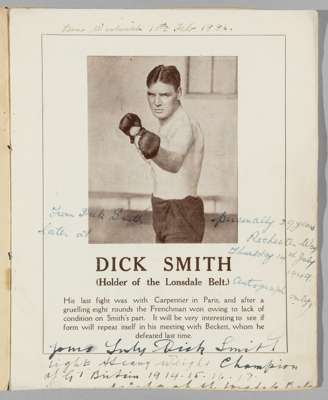 10th Feb 1934.
From Dick Smith personally 27 years
later at
Thursday 14th July
1949
Autograph only
DICK SMITH
(Holder of the Lonsdale Belt.)
His last fight was with Carpentier in Paris, and after a
gruelling eight rounds the Frenchman won owing to lack of
condition on Smith's part. It will be very interesting to see if
form will repeat itself in his meeting with Beckett, whom he
defeated last time.
yours Truly Dick Smith
light Heavy weight Champion
of Gt Britain 1914. 15. 16. 17